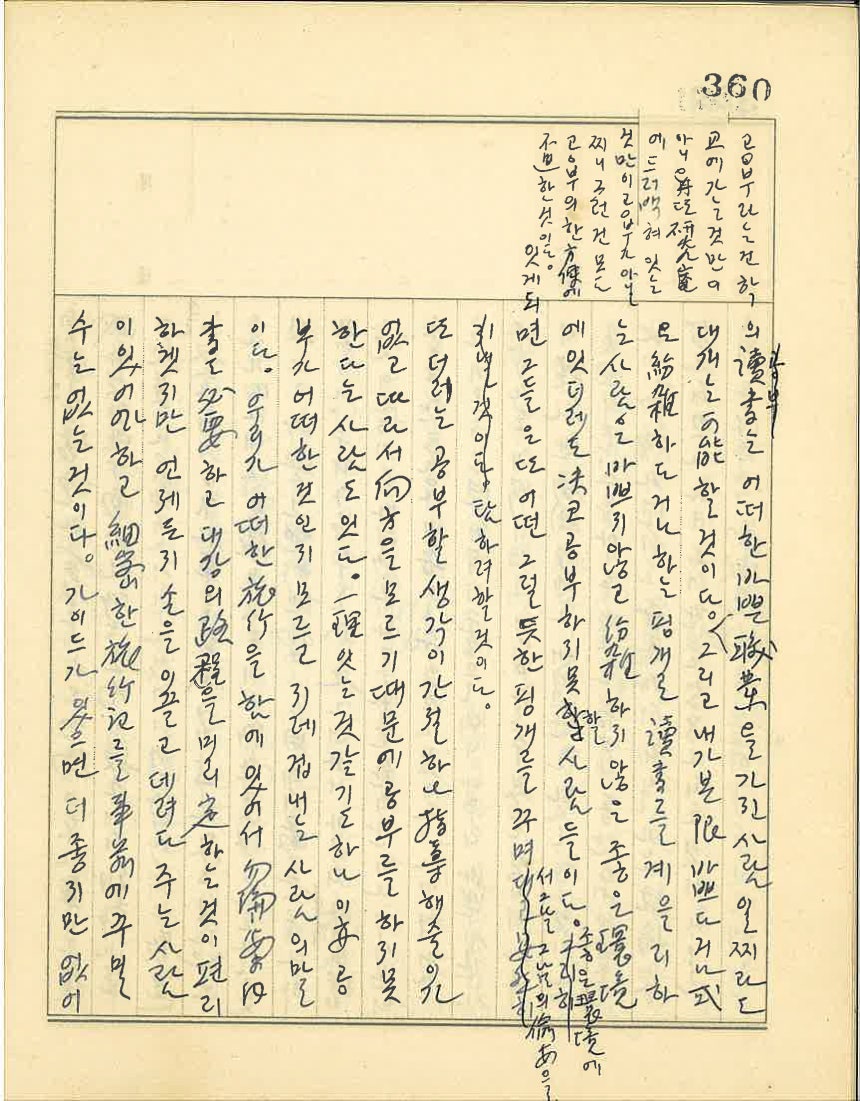 360
공부라는건 학
교에가는것만이
아니며 또 研究室
에 드러백혀 있는
것만이 공부가 아닐
찌니 그런건 모도
공부의 한 方便에
不過한것이다.
의 讀書는 어떠한 바쁜 職業을 가진 사람일찌라도
공부
대개는 可能할 것이다. 그리고 내가본 限 바쁘다거나 或
은 紛雜하다거나 하는 핑개로 讀書를 계을리하
는 사람은 바쁘지 않고 紛雜하지 않은 좋은 環境
에 잇더레도 決코 공부하지못할 사람들이다. 좋은 環境에
잇게되면 그들은 또 어떤 그럴듯한 핑개를 꾸며
것이다.
또 더러는 공부할 생각이 간절하나 指導해줄이가
없고 따라서 方向을 모르기 때문에 공부를 하지못
한다는 사람도 잇다. 一理 잇는 것 같기도 하나 이亦 공
부가 어떠한것인지 모르는 지데 겁내는 사람의 말
이다. 우리가 어떠한 旅行을 함에 있어서 勿論 案內
書도 必要하고 대강의 路程을 미리 定하는것이 편리
하겠지만 언제든지 손을 이끌고 데려다 주는 사람
이 있어야 하고 細密한 旅行記를 事前에 꾸밀
수는 없는것이다. 가이드가 있으면 더 좋지만 없어